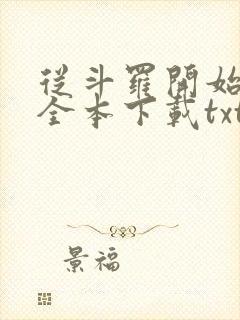 從斗羅開始
全本下載txt
景福